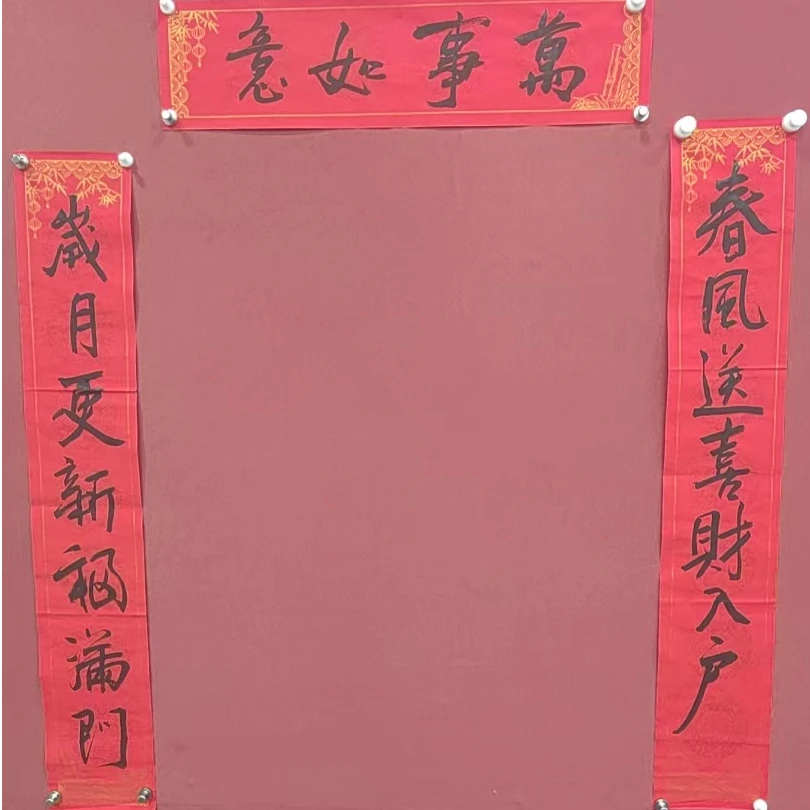 萬事如意
春風送喜財入户
歲月更新福滿門